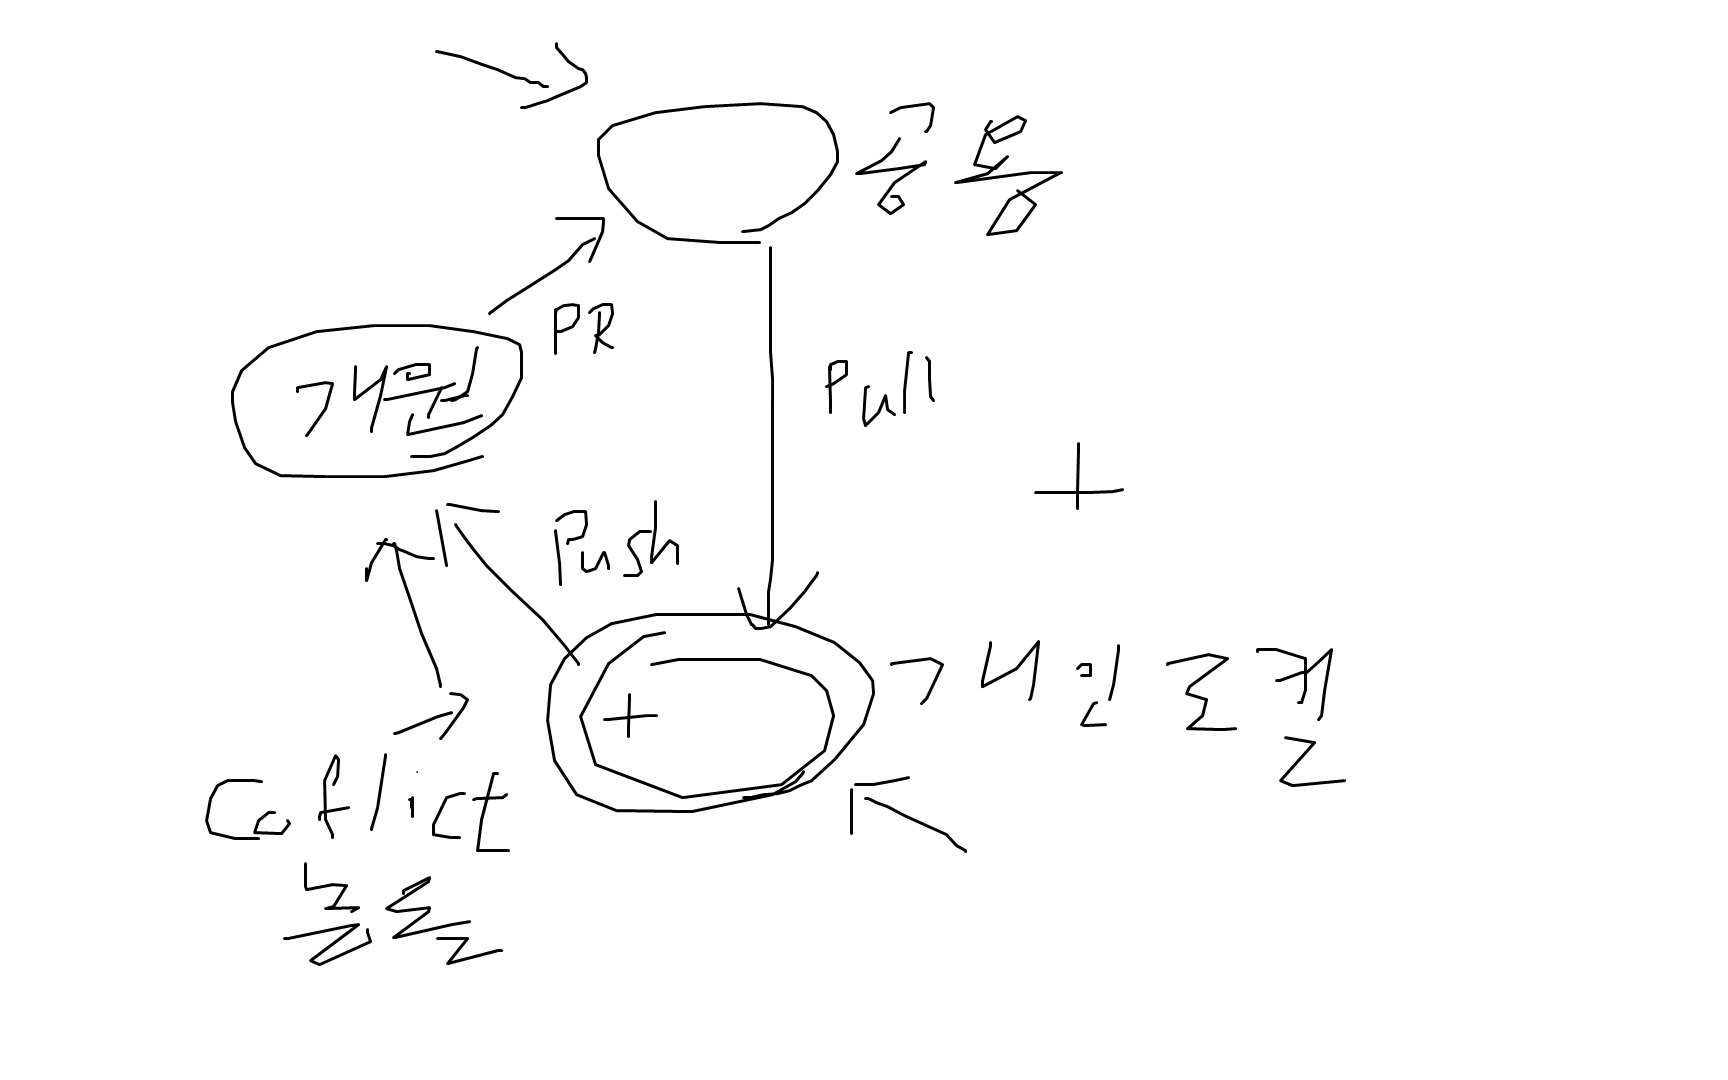 공통
PR
개원
Pull
+
Push
+
개인 로컬
Coflict